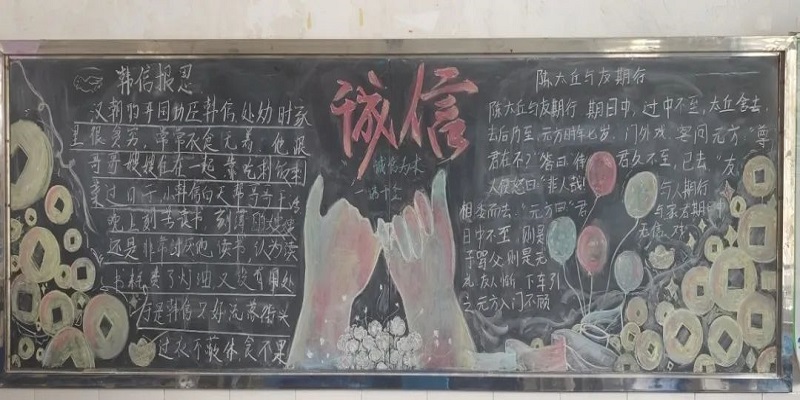 韩信报恩
汉朝的开国功臣韩信,处幼时家
里很贫穷,常常衣食无着,他跟
哥哥嫂嫂住在一起,靠吃剩饭剩
菜过日子,小韩信白天帮哥哥干活
晚上刻苦读书,刻薄的嫂嫂
还是非常讨厌他读书,认为读
书耗费了灯油,又没有用处
于是韩信只好流落街头
过衣不蔽体食不果
诚信
诚信为本
一诺千金
陈太丘与友期行
陈太丘与友期行,期日中,过中不至,太丘舍去,
去后乃至,元方时年七岁,门外戏,客问元方:"尊
君在不?"答曰:"待君久不至,已去"友
人便怒曰"非人哉!与人期行
相委而去."元方曰"君与家君期日中
日中不至,则是无信,对
子骂父,则是无
礼"友人惭,下车引
之元方入门不顾